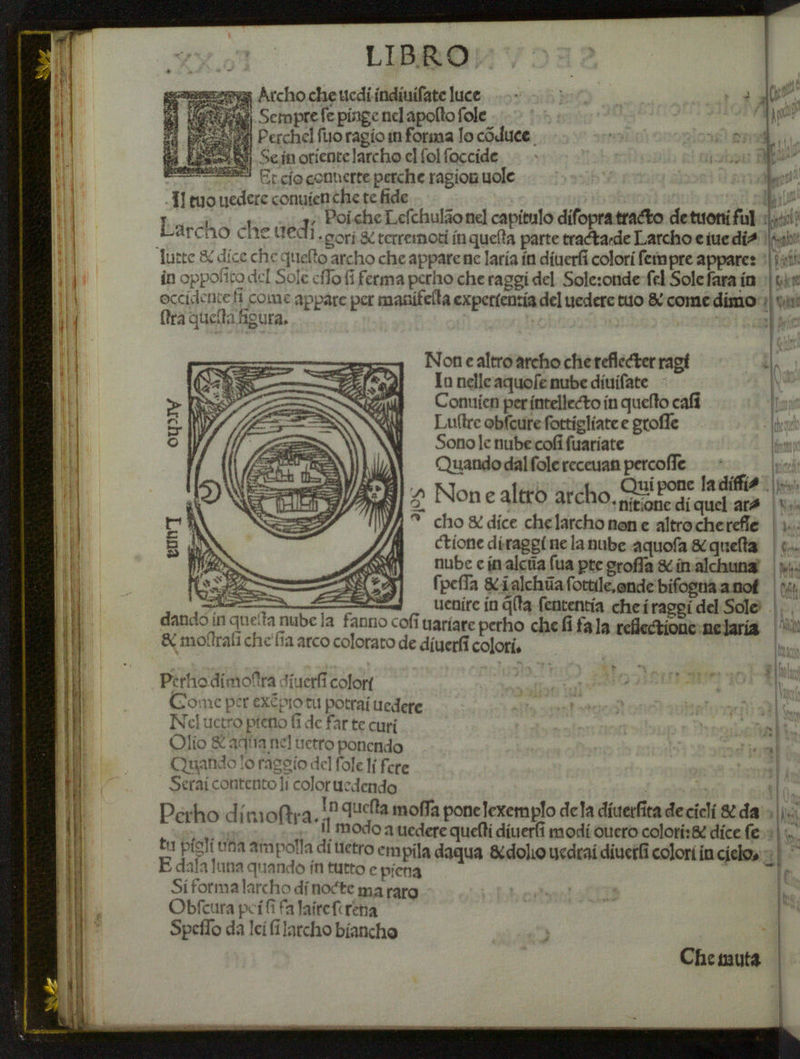 LIBRO
Archo che uedi indiuisate luce
Sempre se pinge nel aposto sole
Perchel suo ragio in forma lo cōduce
Se in oriente larcho el sol soccide
Et cio conuerte perche ragion uole
Il tuo uedere conuien che te fide
Larcho che uedi. Poi che Leschulāo nel capitulo disopra tracto de tuoni ful
gori & terremoti in questa parte tracta de Larcho e iue di⸗
lutte & dice che questo archo che appare ne laria in diuersi colori sempre appare:
in opposito del Sole esso si ferma perho che raggi del Sole:onde sel Sole sara in
occidente si come appare per manifesta experientia del uedere tuo & come dimo
stra questa figura.
Archo
Luna
Sole
Non e altro archo che reflecter ragi
In nelle aquose nube diuisate
Conuien per intellecto in questo casi
Lustre obscure sottigliate e grosse
Sono le nube cosi suariate
Quando dal sole receuan percosse
Non e altro archo. Qui pone la diffi⸗
nitione di quel ar⸗
cho & dice che larcho non e altro che refle
ctione di raggi ne la nube aquosa & questa
nube e in alcūa sua pte grossa & in alchuna
spessa & i alchūa sottile, onde bisogna a nos
uenire in q̄sta sententia che i raggi del Sole
dando in questa nube la fanno cosi uariare perho che si fa la reflectione ne laria
& mostrasi che sia arco colorato de diuersi colori.
Perho dimostra diuersi colori
Come per exēpio tu potrai uedere
Nel uetro pieno si de far te curi
Olio & aqua nel uetro ponendo
Quando lo raggio del sole li fere
Serai contento li color uedendo
Perho dimostra. In questa mossa pone lexemplo de la diuersita de cicli & da
il modo a uedere questi diuersi modi ouero colori:& dice se
tu pigli una ampolla di uetro empila daqua & dolio uedrai diuersi colori in cielo,
E dala luna quando in tutto e piena
Si forma larcho di nocte ma raro
Obscura poi si fa laire serena
Spesso da lei si larcho biancho
Che muta